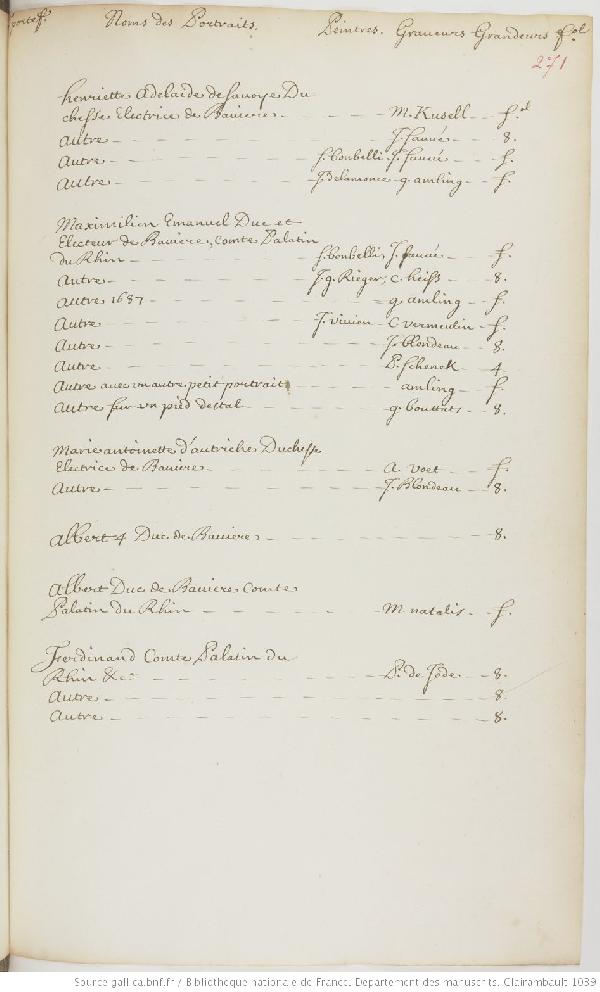 portef. Noms des Portraits. Peintres. Graveurs Grandeurs fol
271
henriette adelaide de Savoye Du
chesse Electrice de Baviere - - - - M. Kusell - - f.ol
autre - - - - J. sauvé - - 8.
Autre - - - - f. bonbelli. J. sauvé - - f.
autre - - - - J. Delamonce g. amling - - f.
Maximilien Emanuel Duc et
Electeur de Baviere, Comte Palatin
du Rhin - - - - f. bonbelli, J. sauvé - - f.
Autre - - - - J. g. Rieger, C. heiss - - 8.
autre 1687 - - - - g. amling - f.
Autre - - - - J. vivien - C. vermeulin - f.
Autre - - - - J. blondeau - 8.
Autre - - - - P. Schenck - 4
Autre avec un autre petit portrait - - - - amling - f.
Autre sur un pied destal - - - - g. bouttats - 8.
Marie antoinette d'autriche Duchesse
Electrice de Baviere - - - - a. voet - - f.
Autre - - - - J. Blondeau - 8.
albert 4 Duc de Baviere - - - - 8.
albert Duc de Baviere Comte
Palatin du Rhin - - - - M. natalis - f.
Ferdinand Comte Palatin du
Rhin &c - - - - P. de Jode - 8.
Autre - - - - 8.
Autre - - - - 8.
Source gallica.bnf.fr / Bibliothèque nationale de France. Département des manuscrits. Clairambault 1039